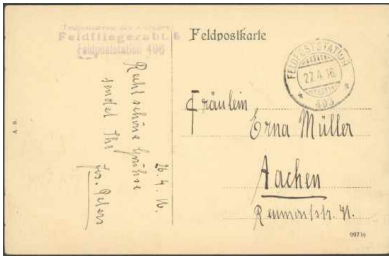 Feldfliegerabt. 6
Feldpoststation 406
Feldpostkarte
FELDPOSTSTATION
27.4.16
406
26.4.16.
Recht schöne Grüsse
sendet Ihr
Fräulein
Erna Müller
Aachen
A. B.